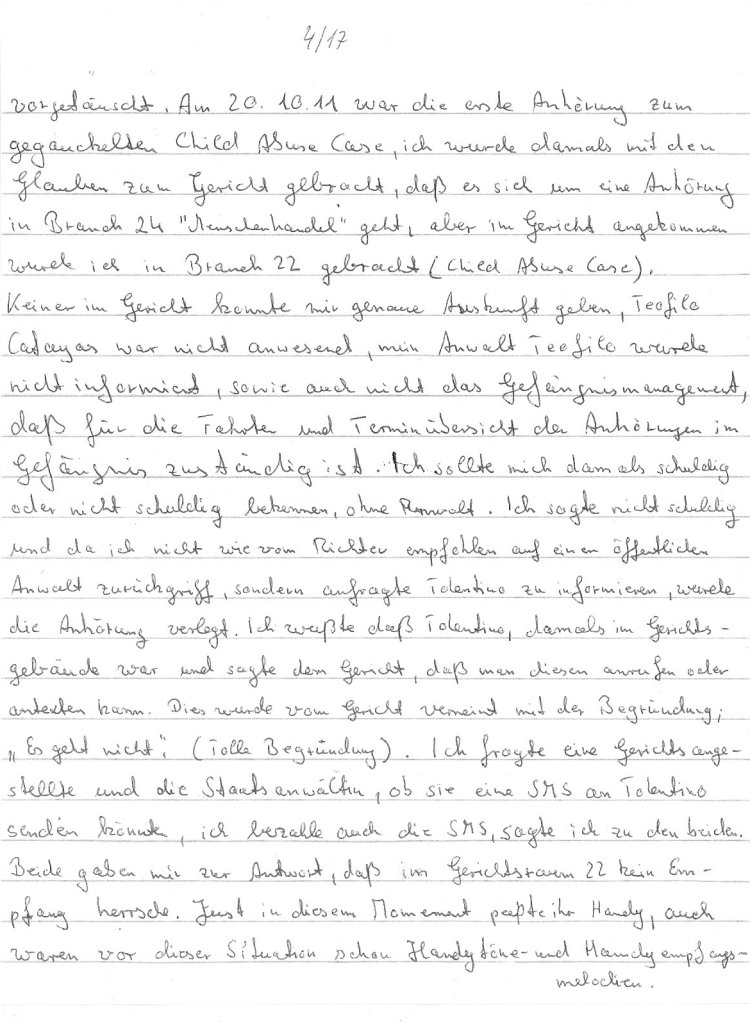 4/17
vorgetäuscht. Am 20.10.11 war die erste Anhörung zum
gegauckelten Child Abuse Case, ich wurde damals mit den
Glauben zum Gericht gebracht, daß es sich um eine Anhörung
in Branch 24 "Menschenhandel" geht, aber im Gericht angekommen
wurde ich in Branch 22 gebracht (Child Abuse Case).
Keiner im Gericht konnte mir genaue Auskunft geben, Teofilo
war nicht anwesend, mein Anwalt Teofilo wurde
nicht informiert, sowie auch nicht das Gefängnismanagement,
daß für die Fahrten und Terminübersicht der Anhörungen im
Gefängnis zuständig ist. Ich sollte mich damals schuldig
oder nicht schuldig bekennen, ohne Anwalt. Ich sagte nicht schuldig
und da ich nicht wie vom Richter empfohlen auf einen öffentlichen
Anwalt zurückgriff, sondern anfragte Tolentino zu informieren, wurde
die Anhörung verlegt. Ich wußte daß Tolentino, damals im Gerichts-
gebäude war und sagte dem Gericht, daß man diesen anrufen oder
antexten kann. Dies wurde vom Gericht verneint mit der Begründung;
„Es geht nicht". (Tolle Begründung). Ich fragte eine Gerichtsange-
stellte und die Staatsanwältin, ob sie eine SMS an Tolentino
senden könnte, ich bezahle auch die SMS, sagte ich zu den beiden.
Beide gaben mir zur Antwort, daß im Gerichtsraum 22 kein Em-
pfang herrsche. Just in diesem Momement piepte ihr Handy, auch
waren vor dieser Situation schon Handytöne- und Handyempfangs-
melodien.